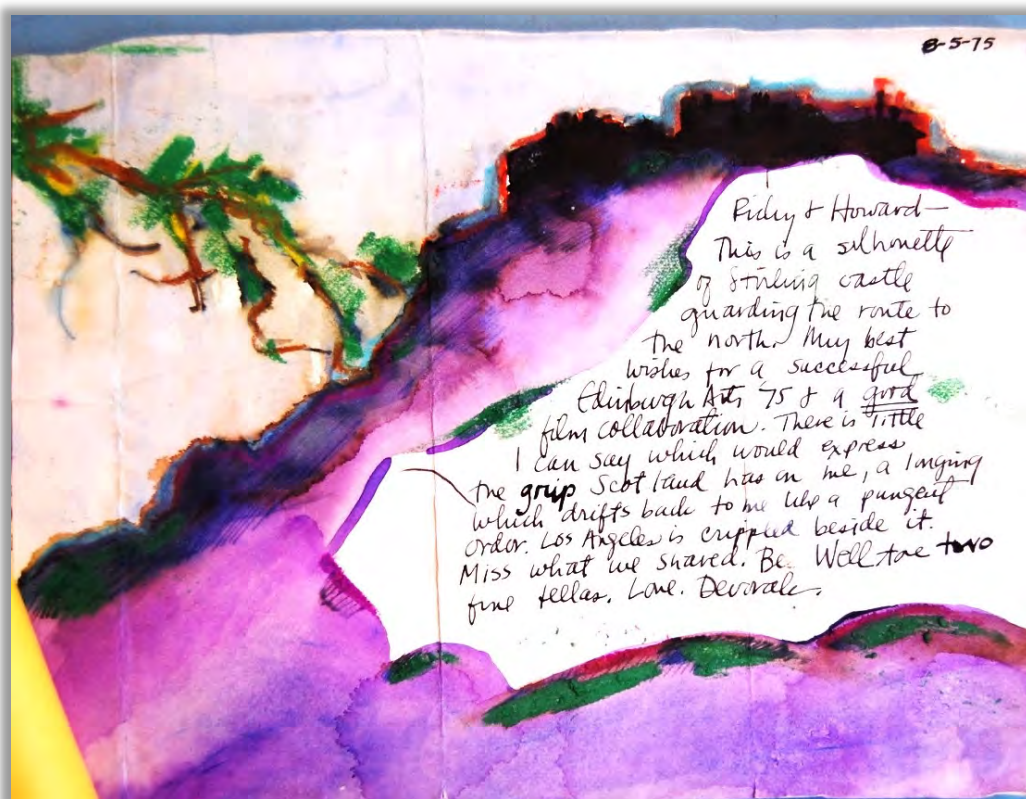 8-5-75
Richy & Howard—
This is a silhouette
of Stirling castle
guarding the route to
the north. My best
wishes for a successful
Edinburgh Arts '75 & a good
film collaboration. There is little
I can say which would express
the grip Scotland has on me, a longing
which drifts back to me like a pungent
ordor. Los Angeles is crippled beside it.
Miss what we shared. Be Well two
fine fellas. Love. Devorah.